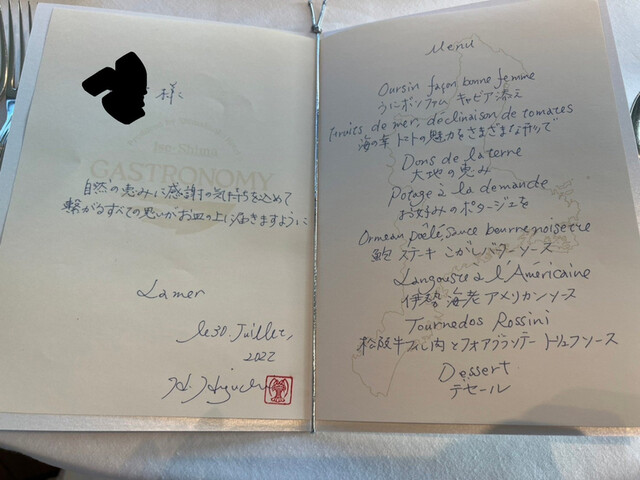 様に
Ise-Shima
GASTRONOMY
自然の恵みに感謝の気持ちを込めて
繋がるすべての思いがお皿の上に届きますように
La mer
le 30, Juillet,
2022
H. Higuchi
Menu
Oursin façon bonne femme
うにボンファム キャビア添え
Fruits de mer, déclinaison de tomates
海の幸 トマトの魅力をさまざまな形で
Dons de la terre
大地の恵み
Potage à la demande
お好みのポタージュを
Ormeau poêlé, sauce beurre noisette
鮑 ステーキ こがしバターソース
Langouste à l'Américaine
伊勢海老アメリカンソース
Tournedos Rossini
松阪牛フィレ肉とフォアグラソテー トリュフソース
Dessert
デセール